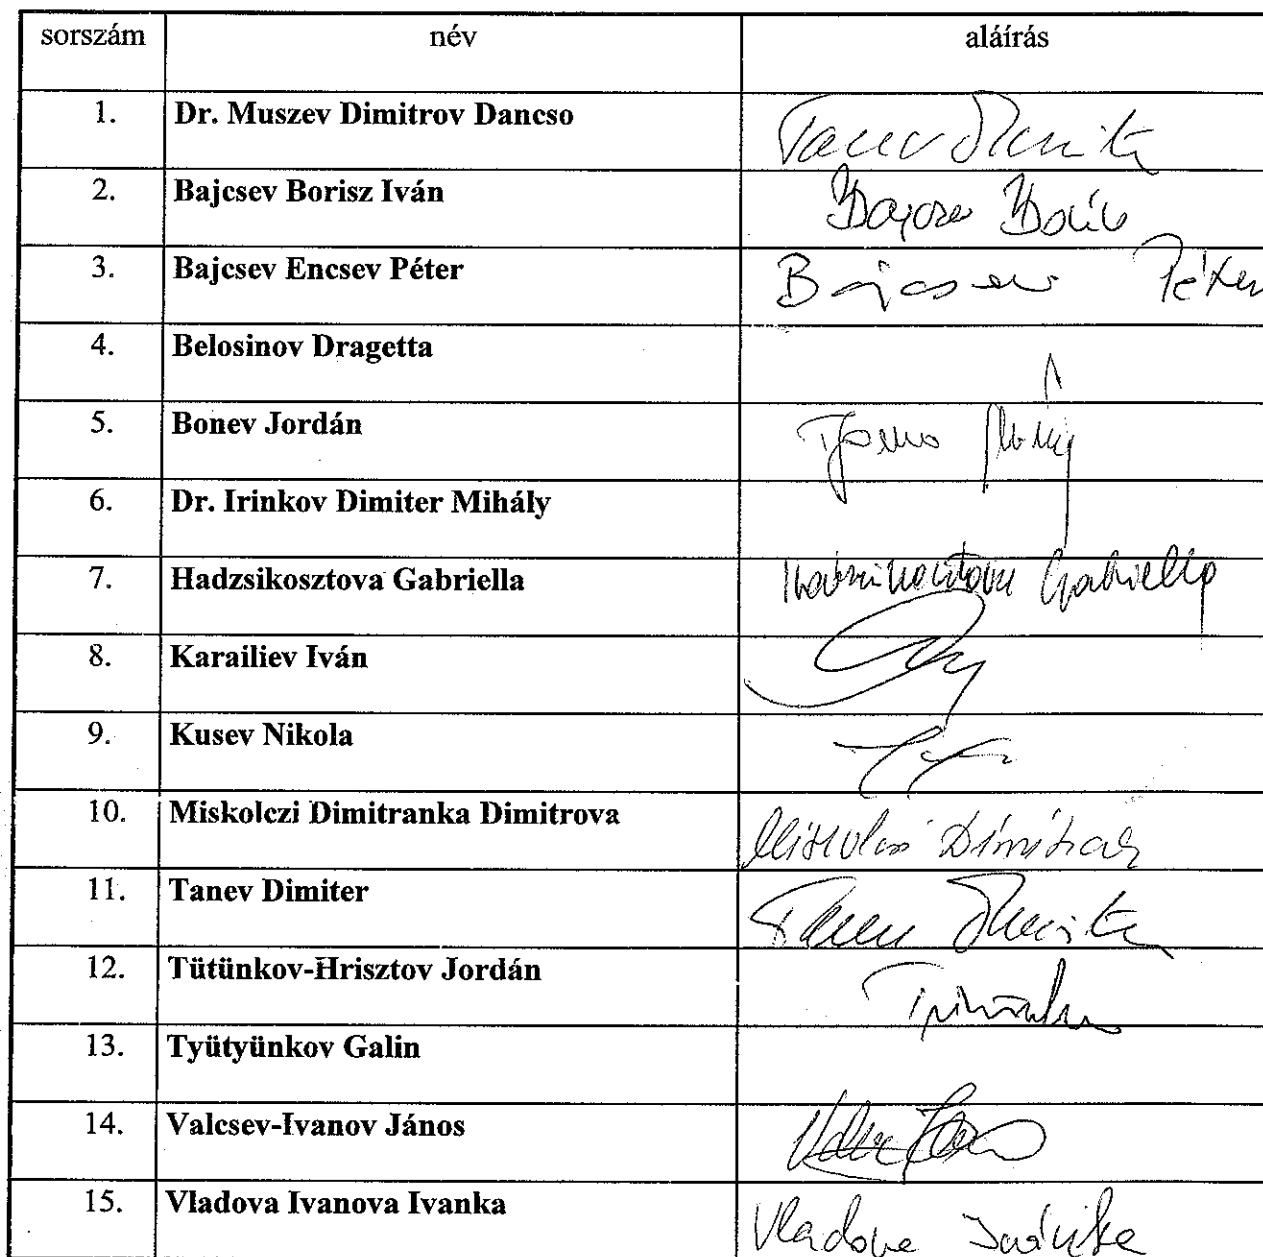 sorszám név aláírás
1. Dr. Muszev Dimitrov Dancso
2. Bajcsev Borisz Iván
3. Bajcsev Encsev Péter Bajcsev Péter
4. Belosinov Dragetta
5. Bonev Jordán
6. Dr. Irinkov Dimiter Mihály
7. Hadzsikosztova Gabriella Gabriella
8. Karailiev Iván
9. Kusev Nikola
10. Miskolczi Dimitranka Dimitrova
11. Tanev Dimiter
12. Tütünkov-Hrisztov Jordán
13. Tyütyünkov Galin
14. Valcsev-Ivanov János
15. Vladova Ivanova Ivanka Vladova